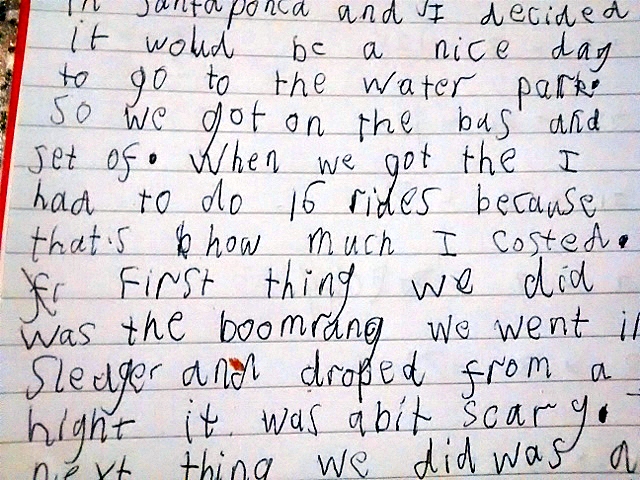 in santaponca and I decided
it woud be a nice day
to go to the water park.
So we got on the bus and
set of. When we got the I
had to do 16 rides because
that's how much I costed.
First thing we did
was the boomrang we went in
Sledger and droped from a
hight it was abit scary.
next thing we did was a